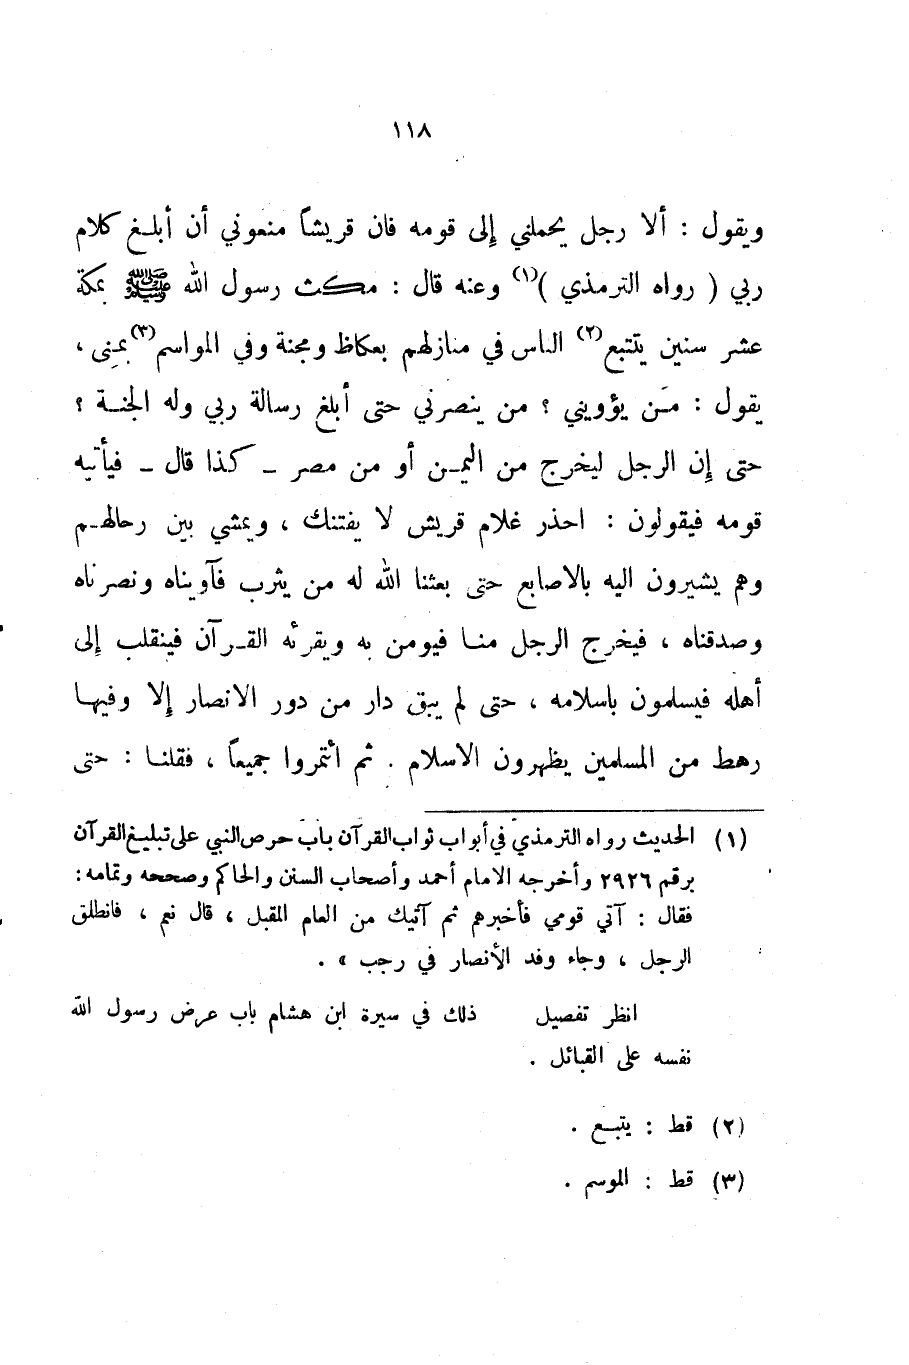 ١١٨
ويقول : ألا رجل يحملني إلى قومه فان قريشاً منعوني أن أبلـغ كلام
ربي ( رواه الترمذي )(١) وعنه قال : مكـث رسول الله ﷺ بمكة
عشر سنين يتتبع(٢) الناس في منازلهم بعكاظ ومجنة وفي المواسم(٣) بمِنى ،
يقول : مَـن يؤويني ؟ من ينصرني حتى أبلغ رسالة ربي وله الجنـة ؟
حتى إن الرجل ليخرج من اليمـن أو من مصر ـ كـذا قال ـ فيأتيه
قومه فيقولون : احذر غلام قريش لا يفتنك ، ويمشي بين رحالهـم
وهم يشيرون اليه بالاصابع حتى بعثنا الله له من يثرب فآويناه ونصرناه
وصدقناه ، فيخرج الرجل منـا فيومن به ويقرئه القـرآن فينقلب إلى
أهله فيسلمون باسلامه ، حتى لم يبق دار من دور الانصار إلا وفيهـا
رهط من المسلمين يظهرون الاسلام . ثم ائتمروا جميعاً ، فقلنـا : حتى
(١) الحديث رواه الترمذي في أبواب ثواب القرآن باب حرص النبي على تبليغ القرآن
برقم ٢٩٢٦ وأخرجه الامام أحمد وأصحاب السنن والحاكم وصححه وتمامه :
فقال : آتي قومي فأخبرهم ثم آتيك من العام المقبل ، قال نعم ، فانطلق
الرجل ، وجاء وفد الأنصار في رجب » .
انظر تفصيل ذلك في سيرة ابن هشام باب عرض رسول الله
نفسه على القبائل .
(٢) قط : يتبـع .
(٣) قط : الموسم .